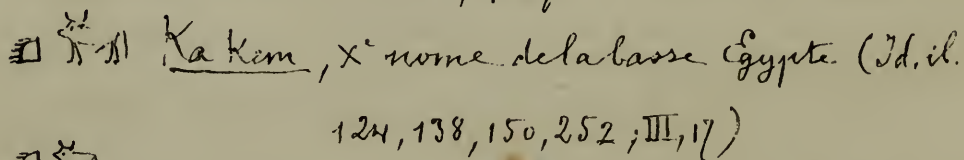 Ka Kem, Xe nome de la basse Égypte. (Id. il.
124, 138, 150, 252 ; III, 17)